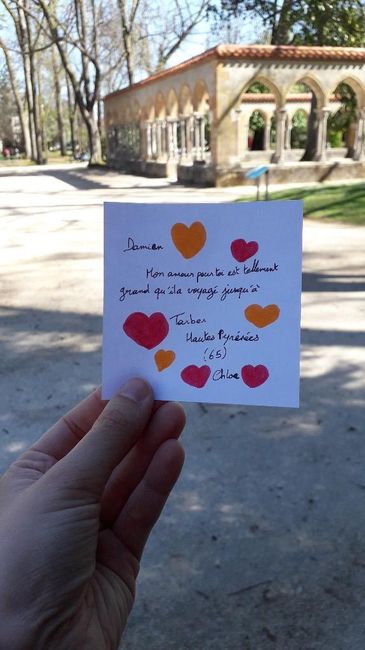 Damien
Mon amour pour toi est tellement
grand qu'il a voyagé jusqu'à
Tarbes
Hautes Pyrénées
(65)
Chloe